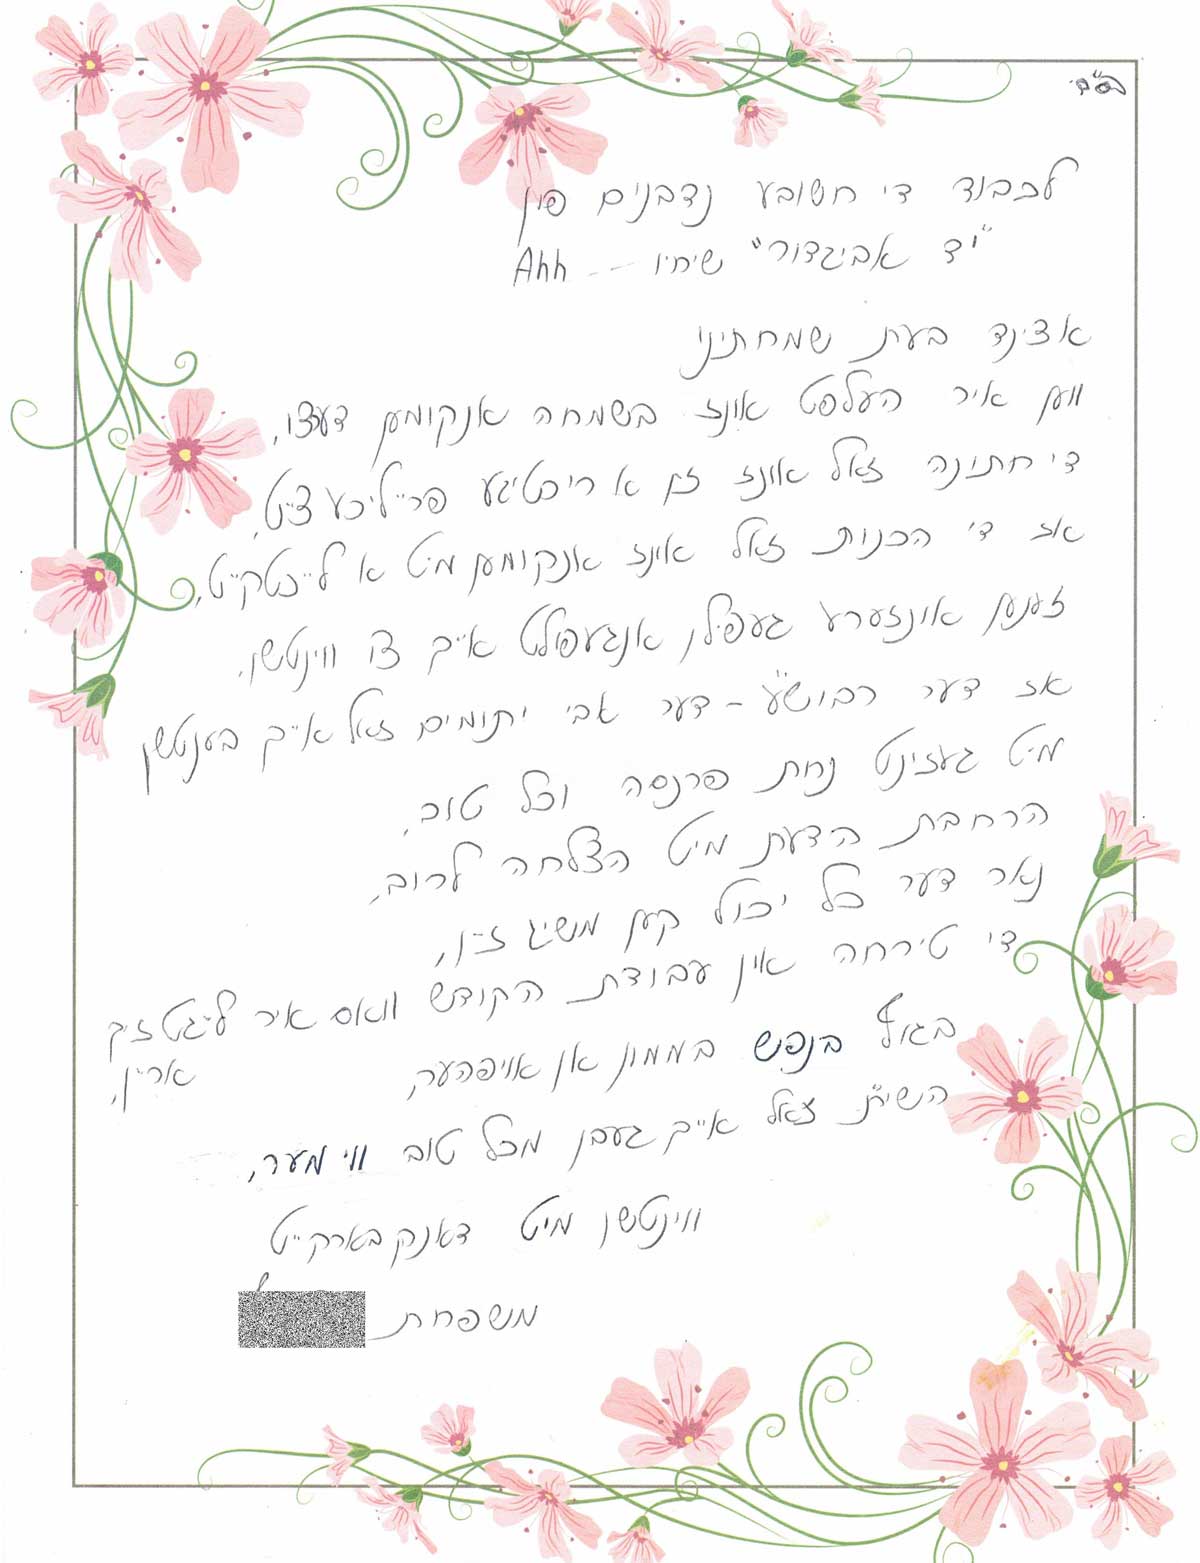 בס"ד
לכבוד די חשובע נדבנים פון
"יד אביגדור" שיחיו -- Ahh
אצינד בעת שמחתינו
ווען איר העלפט אונז בשמחה אנקומען דערצו,
די חתונה זאל אונז זיין א ריכטיגע פרייליכע צייט,
אז די הכנות זאל אונז אנקומען מיט א לייכטקייט,
זענען אונזערע געפילן אנגעפילט אייך צו ווינטשן,
אז דער רבוש"ע - דער אבי יתומים זאל אייך בענטשן
מיט געזינט נחת פרנסה וכל טוב,
הרחבת הדעת מיט הצלחה לרוב,
נאר דער כל יכול קען משיג זיין,
די טירחה אין עבודת הקודש וואס איר לייגט זיך
אריין,
בגוף בנפש בממון אן אויפהער,
השי"ת זאל אייך געבן מכל טוב ווי מער,
ווינטשן מיט דאנקבארקייט
משפחת